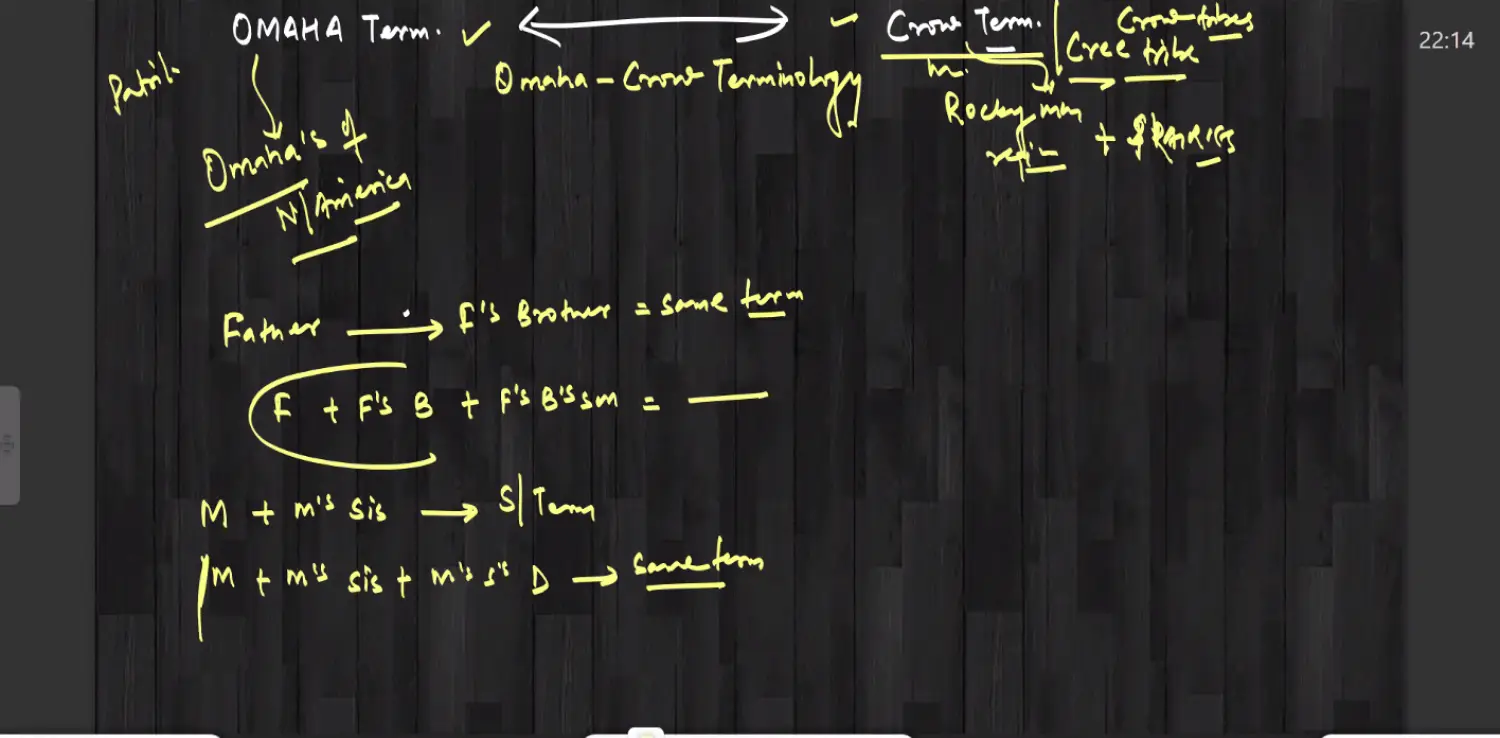 OMAHA Term. ✓ ⟷ ✓ Crow Term.
Crow tribes
Cree tribe
22:14
Patril.
Omaha-Crow Terminology
m.
→
Rocky mm
+ PRAIRIES
Omaha's of
N/America
Father → F's Brother = same term
F + F's B + F's B's son = —
M + m's sis → S/Term
M + m's sis + m's s's D → same term